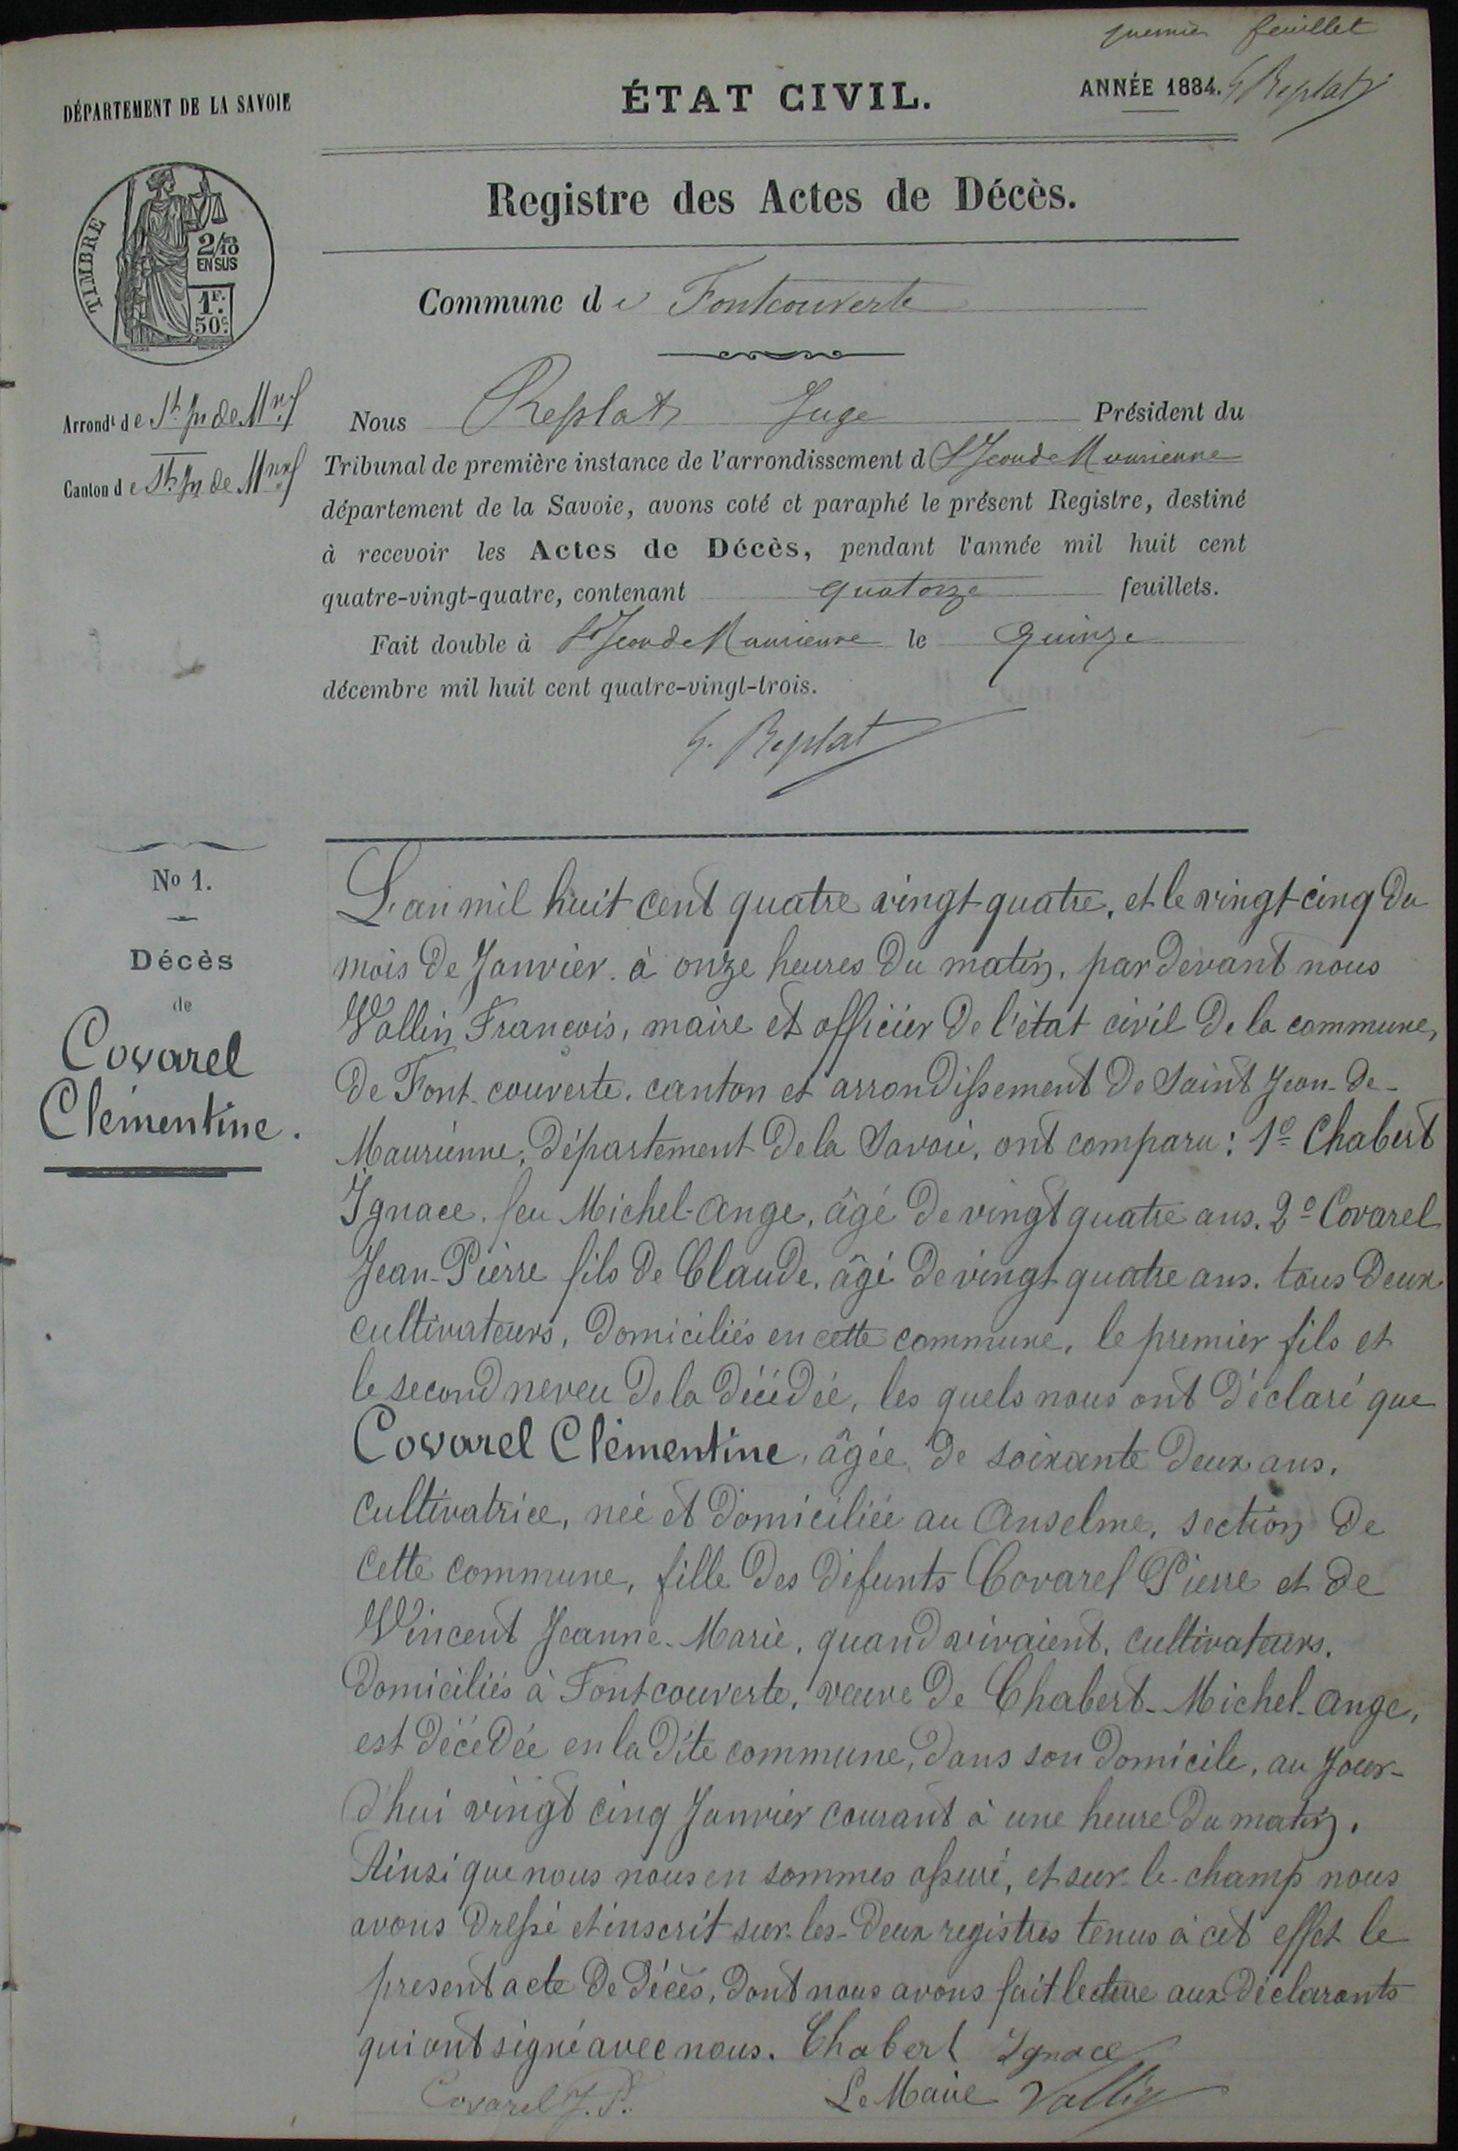 premier feuillet
DÉPARTEMENT DE LA SAVOIE
ÉTAT CIVIL.
ANNÉE 1884. G Replat
Registre des Actes de Décès.
TIMBRE
2/10
EN SUS
1F.
50c.
Commune de Fontcouverte
Arrondt de St Jn de Mne
Canton de St Jn de Mne
Nous Replat Juge Président du
Tribunal de première instance de l'arrondissement d St Jean de Maurienne
département de la Savoie, avons coté et paraphé le présent Registre, destiné
à recevoir les Actes de Décès, pendant l'année mil huit cent
quatre-vingt-quatre, contenant quatorze feuillets.
Fait double à St Jean de Maurienne le quinze
décembre mil huit cent quatre-vingt-trois.
G. Replat
No 1.
Décès
de
Covarel
Clémentine.
L'an mil huit cent quatre vingt quatre, et le vingt cinq du
mois de Janvier. à onze heures du matin, par devant nous
Vallin François, maire et officier de l'état civil de la commune,
de Font-couverte, canton et arrondissement de Saint Jean-de-
Maurienne, département de la Savoie, ont comparu: 1o Chabert
Ignace, feu Michel-Ange, âgé de vingt quatre ans. 2o Covarel
Jean-Pierre fils de Claude, âgé de vingt quatre ans. tous deux
cultivateurs, domiciliés en cette commune, le premier fils et
le second neveu de la décédée, les quels nous ont déclaré que
Covarel Clémentine, âgée de soixante deux ans,
cultivatrice, née et domiciliée au Anselme, section de
cette commune, fille des défunts Covarel Pierre et de
Vincent Jeanne-Marie, quand vivaient, cultivateurs,
domiciliés à Fontcouverte, veuve de Chabert-Michel-Ange,
est décédée en la dite commune, dans son domicile, au jour-
d'hui vingt cinq Janvier courant à une heure du matin.
Ainsi que nous nous en sommes assuré, et sur-le-champ nous
avons dressé et inscrit sur-les-deux registres tenus à cet effet le
present acte de décès, dont nous avons fait lecture aux déclarants
qui ont signé avec nous. Chabert Ignace
Covarel J. P. Le Maire Vallin